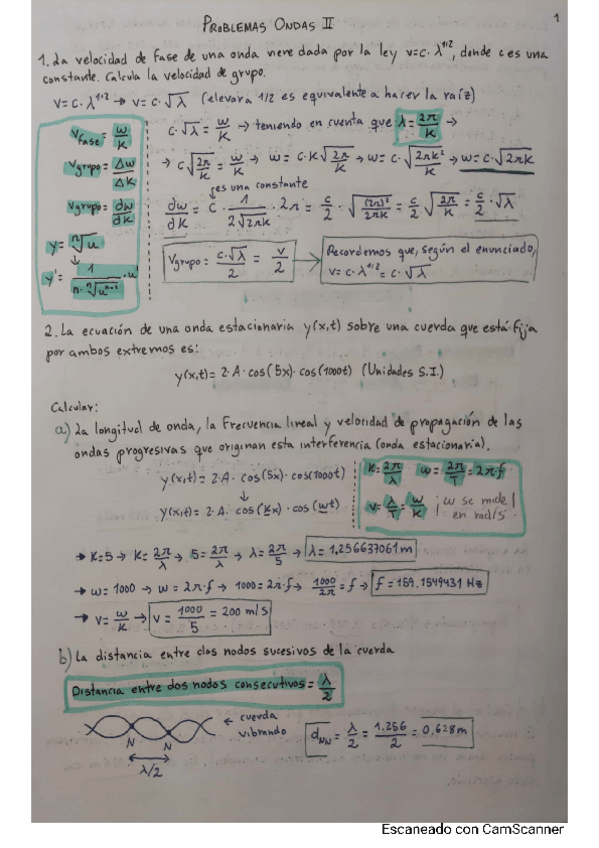 PROBLEMAS ONDAS II
1
1. La velocidad de fase de una onda viene dada por la ley v=c·λ^1/2, donde c es una
constante. Calcula la velocidad de grupo.
v=c·λ^1/2 → v=c·√λ (elevar a 1/2 es equivalente a hacer la raíz)
Vfase = w/k
Vgrupo = Δw/Δk
Vgrupo = dw/dk
y = ⁿ√u
↓
y' = 1/(n·ⁿ√uⁿ⁻¹) · u
c·√λ = w/k → teniendo en cuenta que λ = 2π/k →
→ c√(2π/k) = w/k → w = c·k√(2π/k) → w = c·√(2πk²/k) → w = c·√2πk
es una constante
dw/dk = c · 1/(2√2πk) · 2π = c/2 · √((2π)²/2πk) = c/2 √(2π/k) = c/2 · √λ
Vgrupo = c·√λ/2 = v/2 → Recordemos que, según el enunciado,
v = c·λ^1/2 = c·√λ
2. La ecuación de una onda estacionaria y(x,t) sobre una cuerda que está fija
por ambos extremos es:
y(x,t) = 2·A·cos(5x)·cos(1000t) (Unidades S.I.)
Calcular:
a) La longitud de onda, la frecuencia lineal y velocidad de propagación de las
ondas progresivas que originan esta interferencia (onda estacionaria).
y(x,t) = 2·A·cos(5x)·cos(1000t)
↓
y(x,t) = 2·A·cos(kx)·cos(wt)
k = 2π/λ w = 2π/T = 2πf
v = λ/T = w/k ¡w se mide
en rad/s!
→ k=5 → k = 2π/λ → 5 = 2π/λ → λ = 2π/5 → λ = 1,256637061 m
→ w = 1000 → w = 2π·f → 1000 = 2π·f → 1000/2π = f → f = 159.1549431 Hz
→ v = w/k → v = 1000/5 = 200 m/s
b) La distancia entre dos nodos sucesivos de la cuerda
Distancia entre dos nodos consecutivos = λ/2
← cuerda
vibrando
N N
λ/2
dNN = λ/2 = 1.256/2 = 0,628m
Escaneado con CamScanner